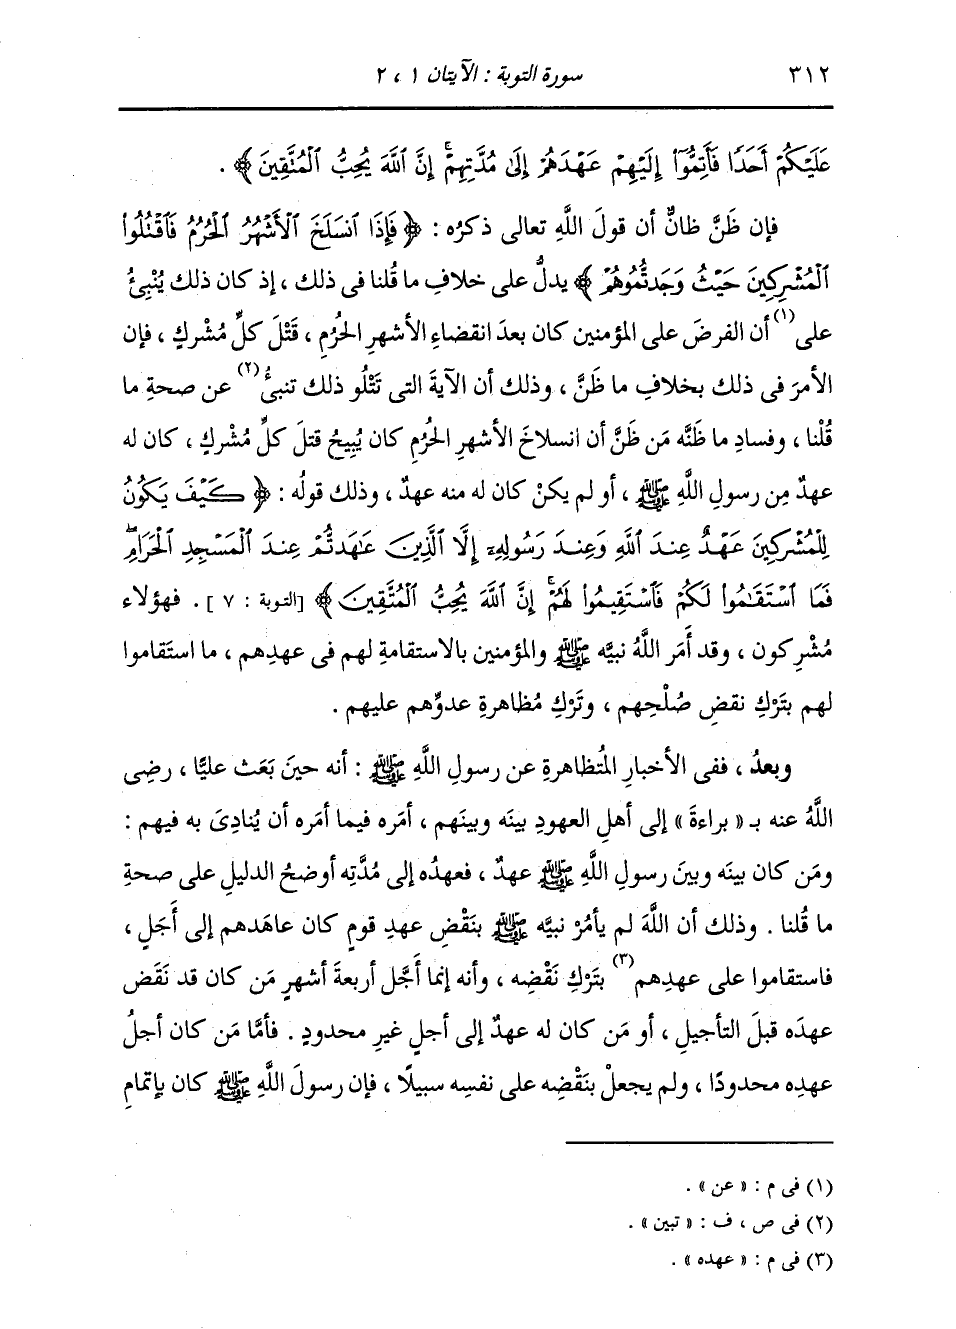 ٣١٢ سورة التوبة : الآيتان ١ ، ٢
عَلَيْكُمْ أَحَدًا فَأَتِمُّوٓا۟ إِلَيْهِمْ عَهْدَهُمْ إِلَىٰ مُدَّتِهِمْ ۚ إِنَّ ٱللَّهَ يُحِبُّ ٱلْمُتَّقِينَ ﴾ .
فإن ظَنَّ ظانٌّ أن قولَ اللَّهِ تعالى ذكرُه : ﴿ فَإِذَا ٱنسَلَخَ ٱلْأَشْهُرُ ٱلْحُرُمُ فَٱقْتُلُوا۟
ٱلْمُشْرِكِينَ حَيْثُ وَجَدتُّمُوهُمْ ﴾ يدلُّ على خلافِ ما قُلنا فى ذلك ، إذ كان ذلك يُنْبِئُ
على(١) أن الفرضَ على المؤمنين كان بعدَ انقضاءِ الأشهرِ الحُرُمِ ، قَتْلَ كلِّ مُشْركٍ ، فإن
الأمرَ فى ذلك بخلافِ ما ظَنَّ ، وذلك أن الآيةَ التى تَتْلُو ذلك تنبئُ(٢) عن صحةِ ما
قُلْنا ، وفسادِ ما ظَنَّه مَن ظَنَّ أن انسلاخَ الأشهرِ الحُرُمِ كان يُبِيحُ قتلَ كلِّ مُشْركٍ ، كان له
عهدٌ مِن رسولِ اللَّهِ ﷺ ، أو لم يكنْ كان له منه عهدٌ ، وذلك قولُه : ﴿ كَيْفَ يَكُونُ
لِلْمُشْرِكِينَ عَهْدٌ عِندَ ٱللَّهِ وَعِندَ رَسُولِهِۦٓ إِلَّا ٱلَّذِينَ عَٰهَدتُّمْ عِندَ ٱلْمَسْجِدِ ٱلْحَرَامِ ۖ
فَمَا ٱسْتَقَٰمُوا۟ لَكُمْ فَٱسْتَقِيمُوا۟ لَهُمْ ۚ إِنَّ ٱللَّهَ يُحِبُّ ٱلْمُتَّقِينَ ﴾ [التوبة : ٧ ] . فهؤلاء
مُشْرِكون ، وقد أمَر اللَّهُ نبيَّه ﷺ والمؤمنين بالاستقامةِ لهم فى عهدِهم ، ما استَقاموا
لهم بتَرْكِ نقضِ صُلْحِهم ، وتَرْكِ مُظاهرةِ عدوِّهم عليهم .
وبعدُ ، ففى الأخبارِ المُتظاهرةِ عن رسولِ اللَّهِ ﷺ : أنه حينَ بَعَث عليًّا ، رضِى
اللَّهُ عنه بـ « براءةَ » إلى أهلِ العهودِ بينَه وبينَهم ، أمَره فيما أمَره أن يُنادِىَ به فيهم :
ومَن كان بينَه وبينَ رسولِ اللَّهِ ﷺ عهدٌ ، فعهدُه إلى مُدَّتِه أوضحُ الدليلِ على صحةِ
ما قُلنا . وذلك أن اللَّهَ لم يأمُرْ نبيَّه ﷺ بنَقْضِ عهدِ قومٍ كان عاهَدهم إلى أَجَلٍ ،
فاستقاموا على عهدِهم(٣) بتَرْكِ نَقْضِه ، وأنه إنما أجَّل أربعةَ أشهرٍ مَن كان قد نَقَض
عهدَه قبلَ التأجيلِ ، أو مَن كان له عهدٌ إلى أجلٍ غيرِ محدودٍ . فأمَّا مَن كان أجلُ
عهدِه محدودًا ، ولم يجعلْ بنَقْضِه على نفسِه سبيلًا ، فإن رسولَ اللَّهِ ﷺ كان بإتمامِ
(١) فى م : « عن » .
(٢) فى ص ، ف : « تبين » .
(٣) فى م : « عهده » .